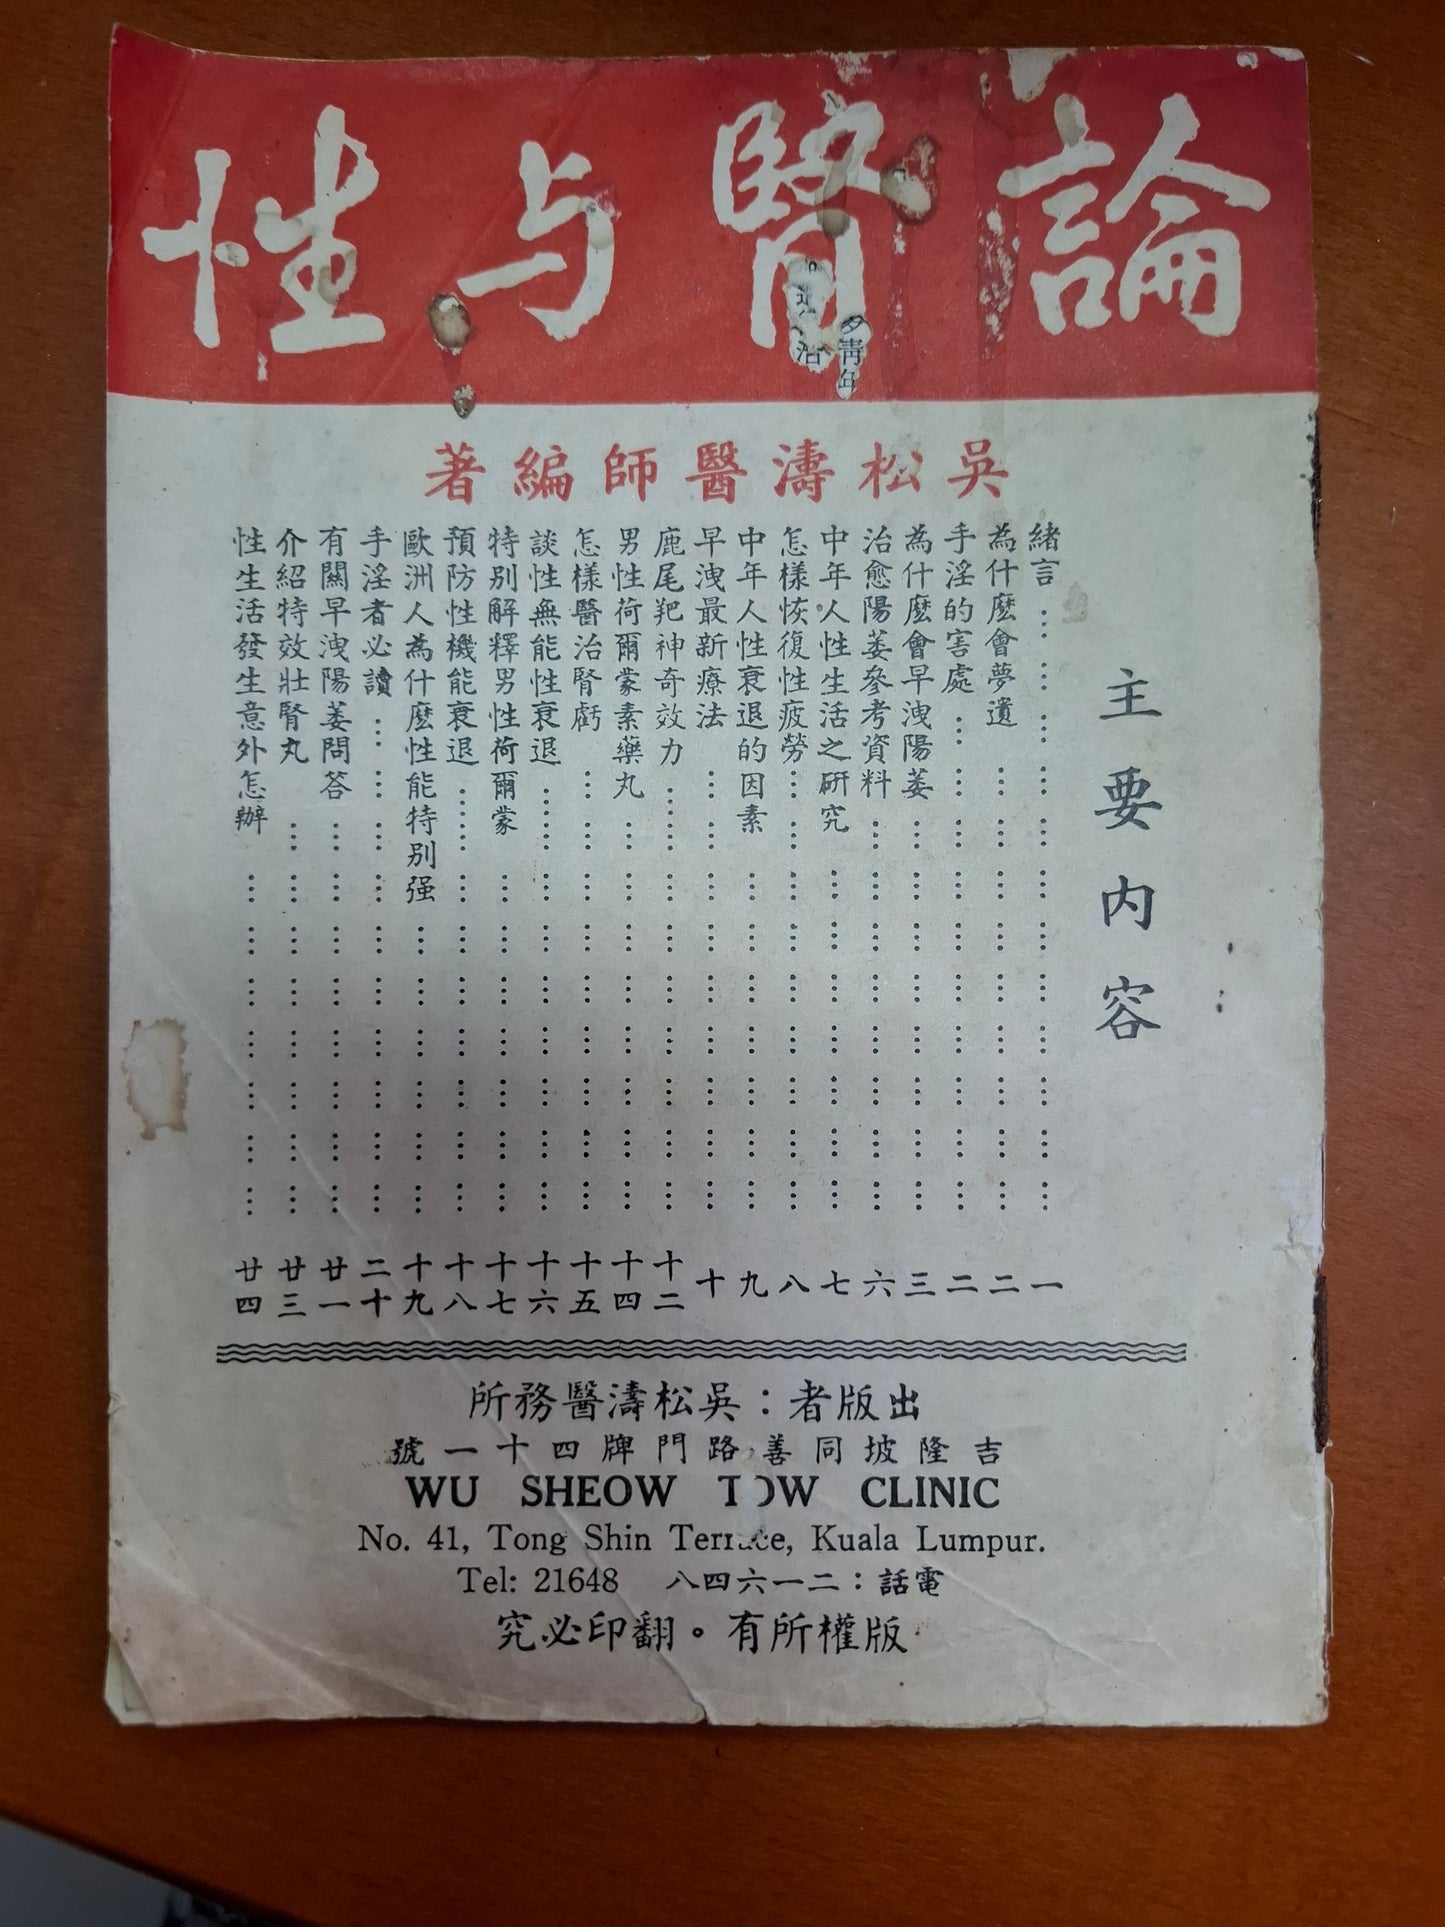 論醫与性
吳松濤醫師編著
主要內容
緒言……一
為什麼會夢遺……二
手淫的害處……二
為什麼會早洩陽萎……三
治愈陽萎參考資料……六
中年人性生活之研究……七
怎樣恢復性疲勞……八
中年人性衰退的因素……九
早洩最新療法……十
鹿尾羓神奇效力……十二
男性荷爾蒙素藥丸……十四
怎樣醫治腎虧……十五
談性無能性衰退……十六
特別解釋男性荷爾蒙……十七
預防性機能衰退……十八
歐洲人為什麼性能特別强……十九
手淫者必讀……二十
有關早洩陽萎問答……廿一
介紹特效壯腎丸……廿三
性生活發生意外怎辦……廿四
出版者：吳松濤醫務所
吉隆坡同善路門牌四十一號
WU SHEOW TOW CLINIC
No. 41, Tong Shin Terrace, Kuala Lumpur.
Tel: 21648 電話：二一六四八
版權所有。翻印必究